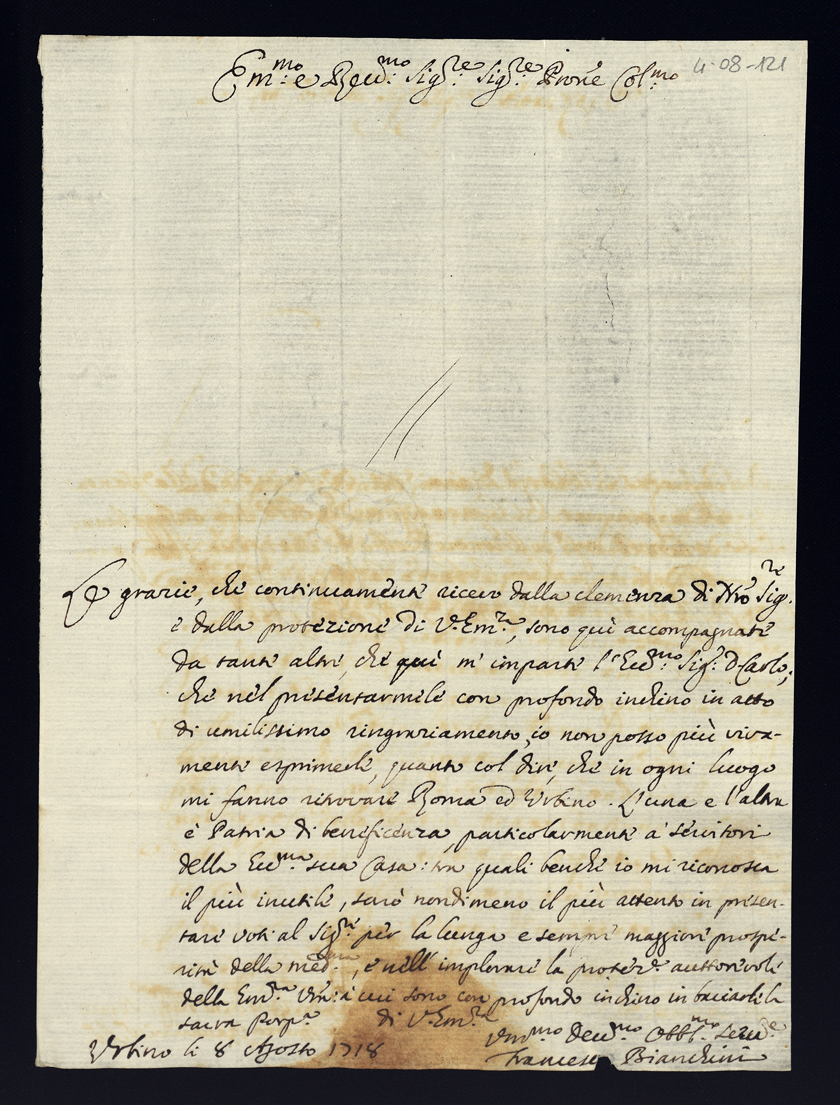 Em.mo e Reu.mo Sig.re Sig.re Prone Col.mo
4-08-121
Le grazie, che continuamente riceuo dalla clemenza di Nro Sig.re
e dalla protezione di V. Em.za, sono quì accompagnate
da tante altre, che quì m'imparte l'Ecc.mo Sig.r D. Carlo;
che nel presentarmele con profondo inchino in atto
di umilissimo ringraziamento, io non posso più viva-
mente esprimerle, quanto col dire, che in ogni luogo
mi fanno ritrovare Roma ed Urbino. L'una e l'altra
è Patria di beneficenza, particolarmente a' seruitori
della Ecc.ma sua Casa: tra quali benche io mi riconosca
il più inutile, sarò nondimeno il più attento in presen-
tare voti al Sig.re per la lunga e sempre maggiore prospe-
rità della med.ma, e nell'implorare la protez.e auttorevole
della Em.za Vra: à cui sono con profondo inchino in baciarle la
sacra Porp.a di V. Em.za
Vm.mo Deu.mo Obb.mo Seru.re
Urbino li 8 Agosto 1718 Francesco Bianchini